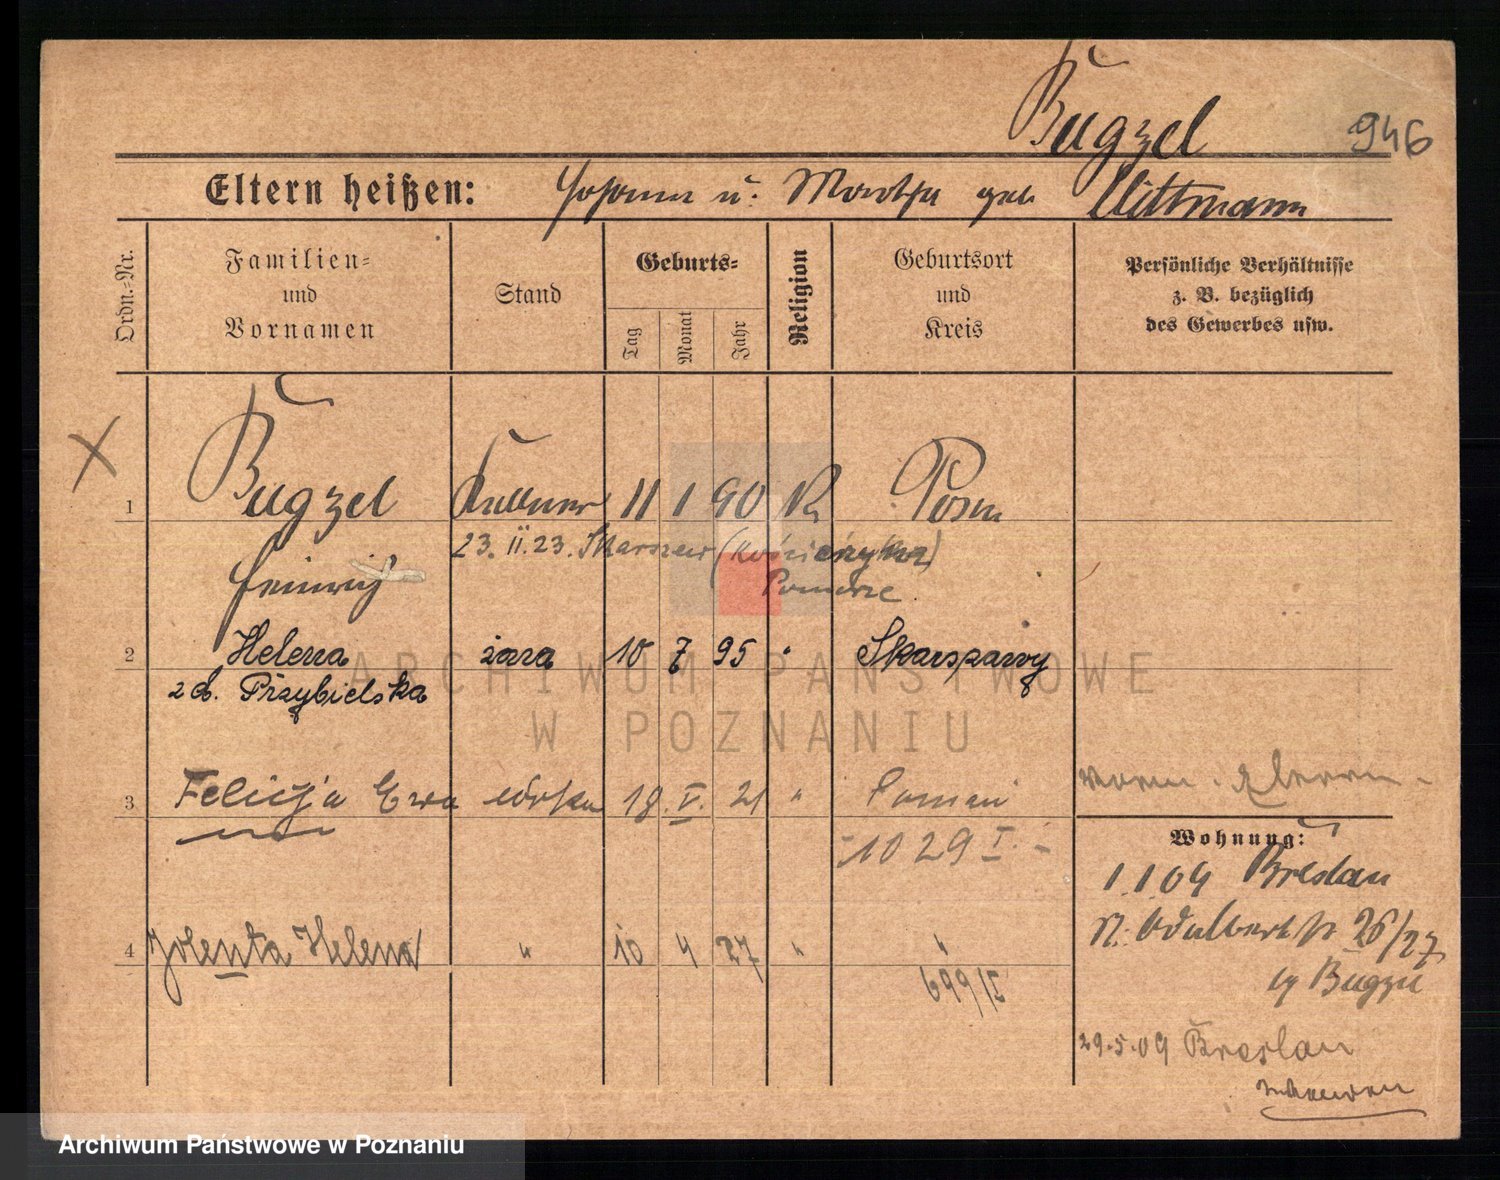 Bugzel 946
Eltern heißen: Johann u. Martha geb. Wittmann
Ordn.-Nr.
Familien-
und
Vornamen
Stand
Geburts-
Tag
Monat
Jahr
Religion
Geburtsort
und
Kreis
Persönliche Verhältnisse
z. B. bezüglich
des Gewerbes usw.
X
1 Bugzel Kellner 11 1 90 K Posen
23. II. 23. Skarszew (Kościerzyna)
Pomorze
Heinrich
2 Helena żona 10 7 95 " Skarszawy
z d. Przybielska
3 Felicja Ewa córka 18 V. 21 " Poznań
-1029 I.-
4 Jolenta Helena " 10 4 27 " "
699/I
Wohnung:
1.1.09 Breslau
n. Adalbertstr 26/27
Bugzel
29.5.09 Breslau
ARCHIWUM PAŃSTWOWE
W POZNANIU
Archiwum Państwowe w Poznaniu